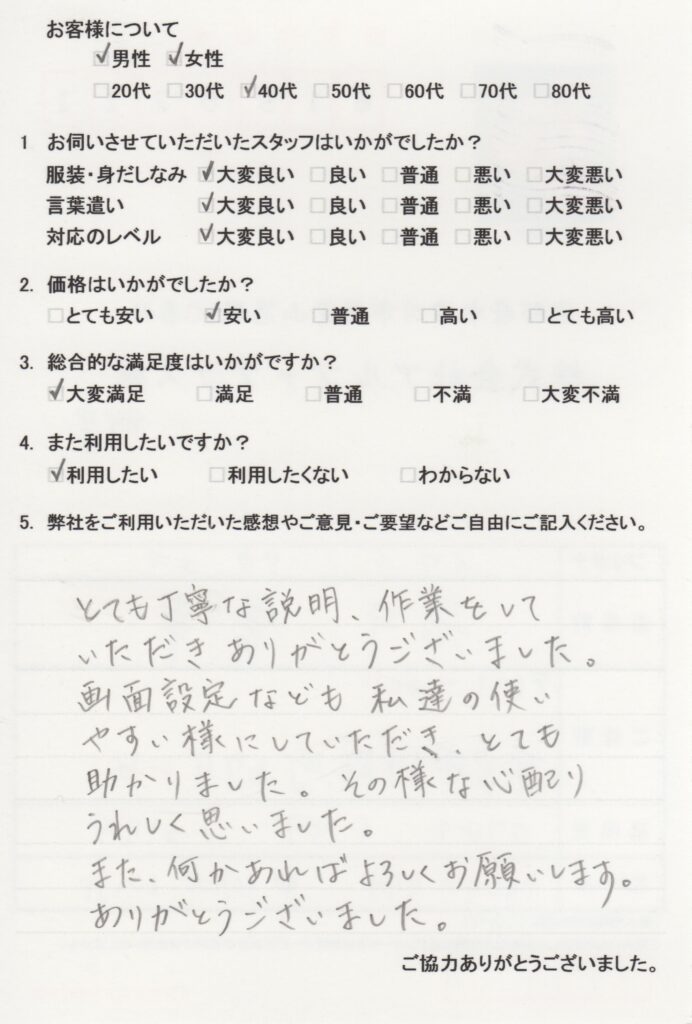 お客様について
☑男性 ☑女性
□20代 □30代 ☑40代 □50代 □60代 □70代 □80代
1 お伺いさせていただいたスタッフはいかがでしたか？
服装・身だしなみ ☑大変良い □良い □普通 □悪い □大変悪い
言葉遣い ☑大変良い □良い □普通 □悪い □大変悪い
対応のレベル ☑大変良い □良い □普通 □悪い □大変悪い
2. 価格はいかがでしたか？
□とても安い ☑安い □普通 □高い □とても高い
3. 総合的な満足度はいかがですか？
☑大変満足 □満足 □普通 □不満 □大変不満
4. また利用したいですか？
☑利用したい □利用したくない □わからない
5. 弊社をご利用いただいた感想やご意見・ご要望などご自由にご記入ください。
とても丁寧な説明、作業をして
いただきありがとうございました。
画面設定なども私達の使い
やすい様にしていただき、とても
助かりました。その様な心配り
うれしく思いました。
また、何かあればよろしくお願いします。
ありがとうございました。
ご協力ありがとうございました。